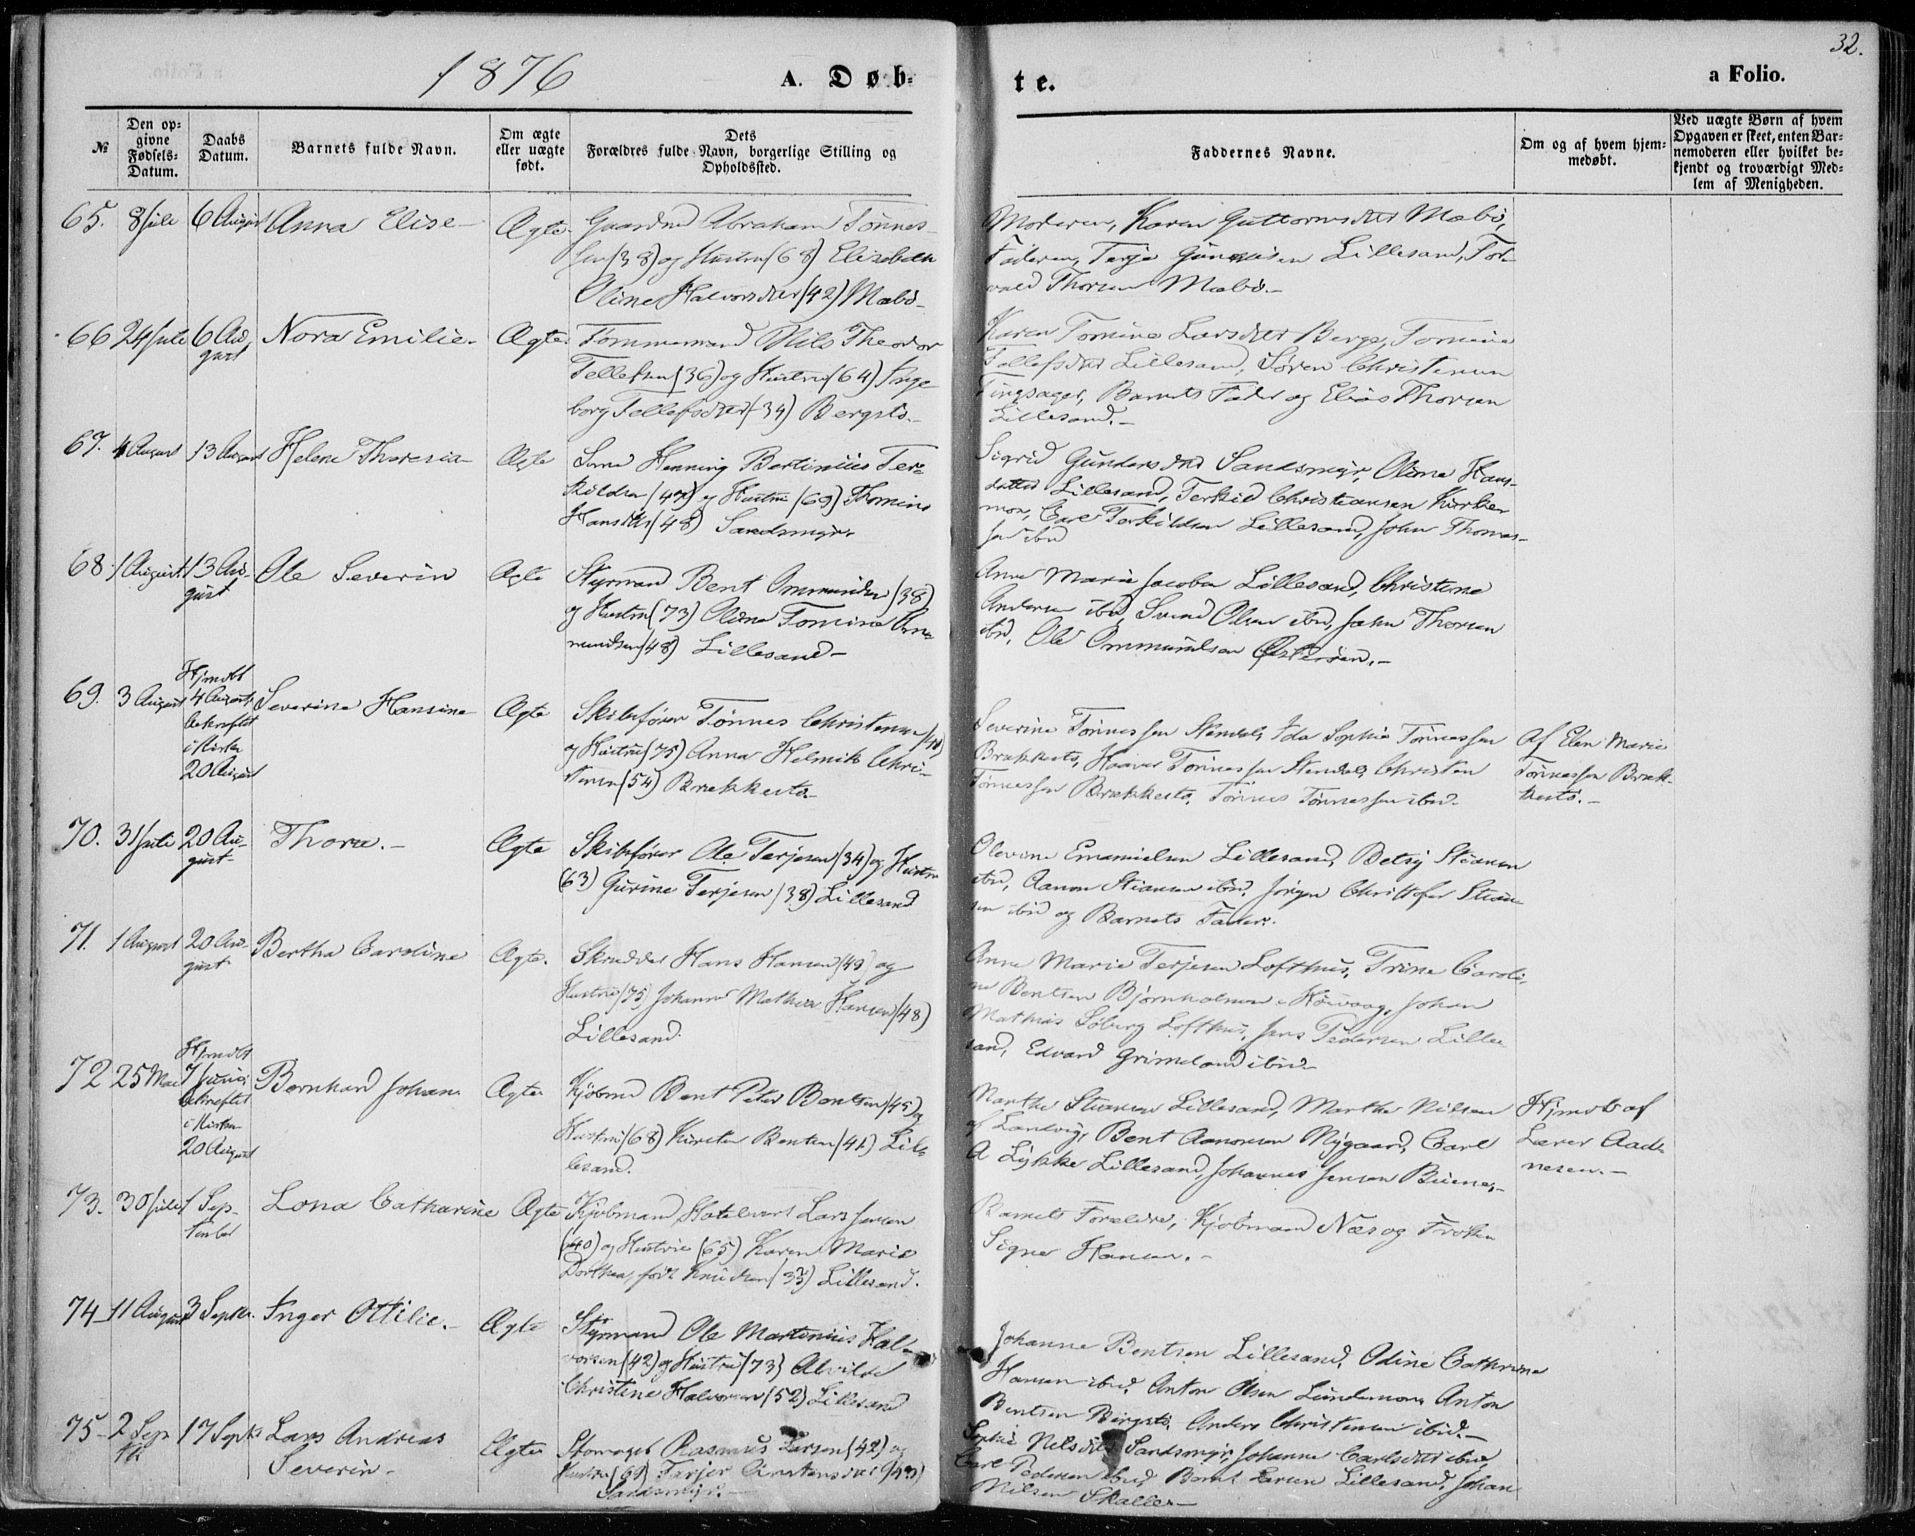 1876
A. Døb-
te.
32.
a Folio.
№
Den op-
givne
Fødsels-
Datum.
Daabs
Datum.
Barnets fulde Navn.
Om ægte
eller uægte
født.
Dets
Forældres fulde Navn, borgerlige Stilling og
Opholdssted.
Faddernes Navne.
Om og af hvem hjem-
medøbt.
Ved uægte Børn af hvem
Opgaven er skeet, enten Bar-
nemoderen eller hvilket be-
kjendt og troværdigt Med-
lem af Menigheden.
65. 8 Juli 6 August Anna Elise Ægte Gaardmd Abraham Tønnes-
sen (38) og Hustru (68) Elisabeth
Oline Halvorsdtr (42) Mæbø
Moderen, Karen Guttormsdtr Mæbø,
Faderen, Terje Lillesand, Tor-
vald Thorsen Mæbø.
66 24 Juli 6 Au-
gust
Nora Emilie. Ægte Tømmermand Nils Theodor
Tellefsen (36) og Hustru (64) Inge-
borg Tellefsdtr (34) Bergstø.
Karen Tomine Larsdtr Berge, Tomine
Tellefsdtr Lillesand, Søren Christensen
Tingsager, Barnets Fader og Elias Thorsen
Lillesand.
67. 4 August 13 August Helene Theresia Ægte Smed Henning Bertinius Ter-
kildsen (47) og Hustru (69) Thomine
Hansdtr (48) Sandsmyr.
Sigrid Gundersdtr Sandsmyr, Oline Hans-
datter Lillesand, Terkild Christiansen Kirker
mon, Carl Torkildsen Lillesand, John Thomas-
sen ibid
68. 1 August 13 Au-
gust
Ole Severin Ægte Styrmand Bent Ommundsen (38)
og Hustru (73) Oline Tomine Om-
mundsen (48) Lillesand
Anne Marie Jacobsen Lillesand, Christine
Andersen ibid, Svend Olsen ibid, John Thorsen
ibid, Ole Ommundsen Østerøen.
69. 3 August Hjmdbt
4 August
bekræftet
i Kirken
20 August
Severine Hansine Ægte Skibsfører Tønnes Christensen (48)
og Hustru (75) Anna Helmik Chri-
stensen (54) Brækkestø
Severine Tønnessen Stendal, Ida Sophie Tønnessen
Brækkestø, Haaver Tønnessen Stendal, Christen
Tønnessen Brækkestø, Tønnes Tønnessen ibid.
Af Elen Marie
Tønnessen Bræk-
kestø.
70. 31 Juli 20 Au-
gust
Thora. Ægte Skibsfører Ole Terjesen (34) og Hustru
(63) Gurine Terjesen (38) Lillesand
Olevine Emanuelsen Lillesand, Betsy Stiansen
ibid, Aanon Stiansen ibid, Jørgen Christoffer Stian-
sen ibid og Barnets Fader.
71. 1 August 20 Au-
gust
Bertha Caroline Ægte. Skrædder Hans Hansen (49) og
Hustru (75) Johanne Mathea Hansen (48)
Lillesand.
Anne Marie Terjesen Lofthus, Trine Caroli-
ne Bentsen Bjørnholmen i Høivaag, Johan
Mathias Søberg Lofthus, Jens Pedersen Lille-
sand, Edvard Grimeland ibid.
72 25 Mai Hjmdbt
7 Juni
bekræftet
i Kirken
20 August
Bernhard Johan Ægte Kjøbmd Bent Peter Bentsen (45) og
Hustru (68) Kirsten Bentsen (41) Lil-
lesand.
Marthe Stiansen Lillesand, Marthe Nilsen
af Landvig, Bent Aanonsen Nygaard, Carl
A Lykke Lillesand, Johannes Jensen
Hjmdbt af
Lærer Aad-
nesen.
73. 30 Juli 1 Sep-
tember
Lona Catharine Ægte Kjøbmand Lars Jensen
(40) og Hustru (65) Karen Marie
Dorthea, født Knudsen (33) Lillesand.
Barnets Forældre, Kjøbmand Næs og Frøken
Signe Hansen.
74 11 August 3 Septbr. Inger Ottilie. Ægte Styrmand Ole Martinius Hal-
vorsen (42) og Hustru (73) Alvilde
Christine Halvorsen (52) Lillesand
Johanne Bentsen Lillesand, Odine Cathrine
Hansen ibid, Anton Olsen Lundemoen, Anton
Bentsen Bergstø, Anders Christensen ibid.
75 2 Sep
tb
17 Septbr Lars Andreas
Severin
Ægte Rasmus Larsen (42) og
Hustru (69) Torjer
Sandsmyr.
Sophie Nilsdtr Sandsmyr, Johanne Carlsdtr ibid,
Carl Pedersen ibid, Bernt Larsen Lillesand, Johan
Nilsen Skalle